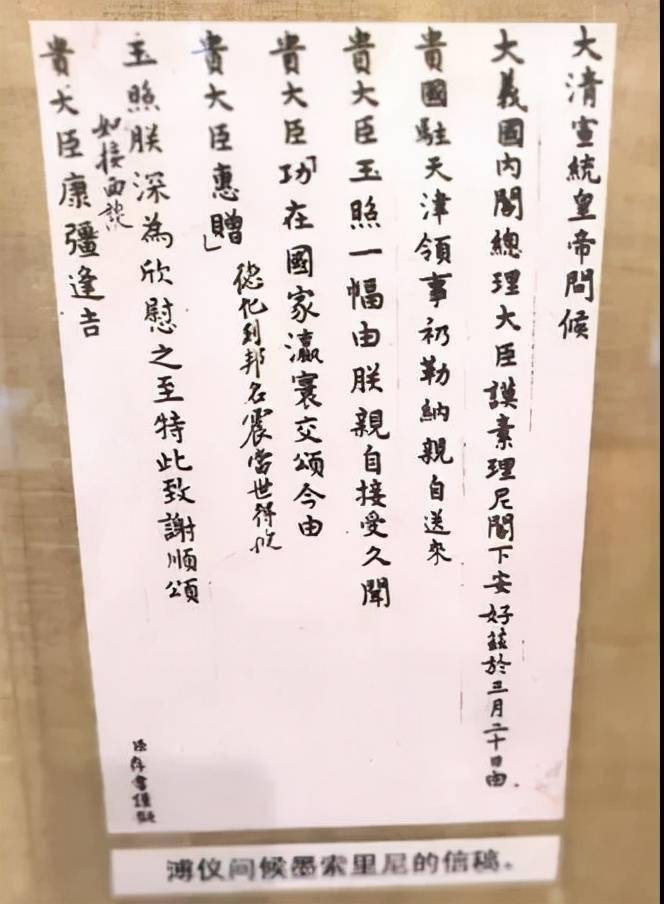 大清宣統皇帝問候
大義國內閣總理大臣謨素理尼閣下安好茲於三月二十日由
貴國駐天津領事礽勒納親自送來
貴大臣玉照一幅由朕親自接受久聞
貴大臣功在國家瀛寰交頌今由
德化列邦名震當世得悅
貴大臣惠贈
玉照朕深為欣慰之至特此致謝順頌
如接面談
貴大臣康彊逢吉
謹擬
溥仪问候墨索里尼的信稿。